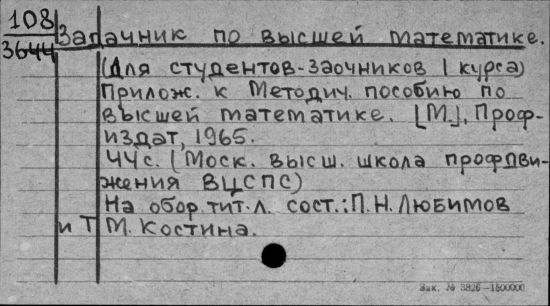 108
3644
Задачник по высшей математике.
(Для студентов-заочников 1 курса)
Прилож. к Методич. пособию по
высшей математике. [М.], Проф-
издат, 1965.
44с. (Моск. высш. школа профдви-
жения ВЦСПС)
На обор. тит. л. сост.: П.Н. Любимов
и Т. М. Костина.
Зак. № 3826—1500000